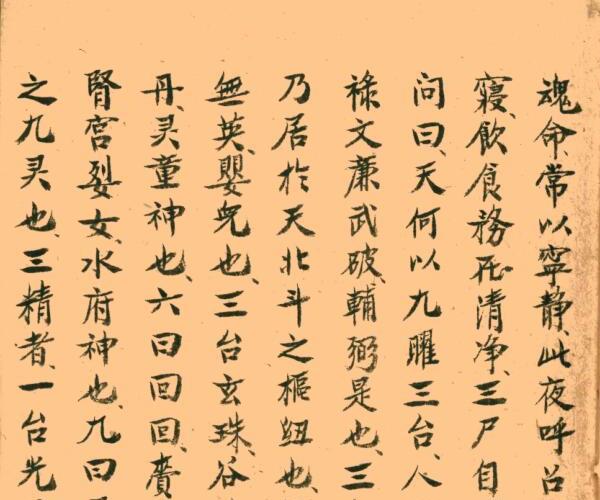 魂命、常以寧靜、此夜呼召
寢、飲食務在清净、三尸自
問曰、天何以九曜三台、人
祿文廉武破、輔弼是也、三
乃居於天北斗之樞紐也、
無英、嬰兒也、三台玄珠、谷
丹、灵童神也、六曰回回、賡
腎宮、裂女、水府神也、九曰
之九灵也、三精者、一台光